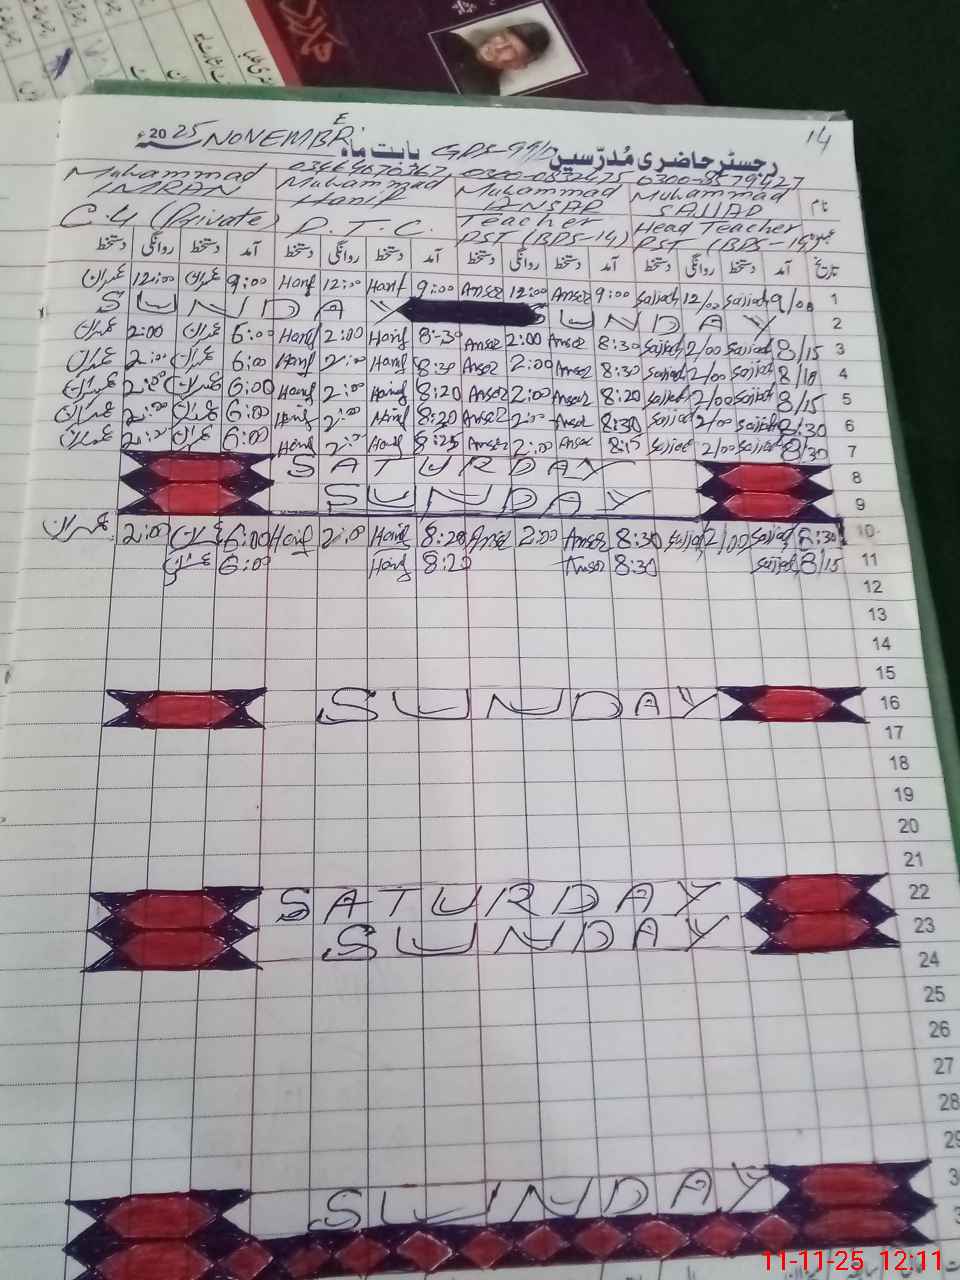 14
رجسٹر حاضری مُدرّسین GPS-99/D بابت ماہ NOVEMBER 2025ء
0300-8579427 0300-0832475 03464070367
نام Muhammad SAJJAD Muhammad ANSAR Muhammad Hanif Muhammad IMRAN
عہدہ Head Teacher PST (BPS-15) Teacher PST (BPS-14) P.T.C. C.4 (Private)
تاریخ آمد دستخط روانگی دستخط آمد دستخط روانگی دستخط آمد دستخط روانگی دستخط آمد دستخط روانگی دستخط
1 9/00 Sajjad 12/00 Sajjad 9:00 Anser 12:00 Anser 9:00 Hanif 12:00 Hanif 9:00 عمران 12:00 عمران
2 SUNDAY SUNDAY
3 8/15 Sajjad 2/00 Sajjad 8:30 Anser 2:00 Anser 8:30 Hanif 2:00 Hanif 6:00 عمران 2:00 عمران
4 8/10 Sajjad 2/00 Sajjad 8:30 Anser 2:00 Anser 8:30 Hanif 2:00 Hanif 6:00 عمران 2:00 عمران
5 8/15 Sajjad 2/00 Sajjad 8:20 Anser 2:00 Anser 8:20 Hanif 2:00 Hanif 6:00 عمران 2:00 عمران
6 8/30 Sajjad 2/00 Sajjad 8:30 Anser 2:00 Anser 8:20 Hanif 2:00 Hanif 6:00 عمران 2:00 عمران
7 8/30 Sajjad 2/00 Sajjad 8:15 Anser 2:00 Anser 8:25 Hanif 2:00 Hanif 6:00 عمران 2:00 عمران
8 SATURDAY
9 SUNDAY
10 8:30 Sajjad 2/00 Sajjad 8:30 Anser 2:00 Anser 8:20 Hanif 2:00 Hanif 6:00 عمران 2:00 عمران
11 8/15 Sajjad 8:30 Anser 8:20 Hanif 6:00 عمران
12
13
14
15
16 SUNDAY
17
18
19
20
21
22 SATURDAY
23 SUNDAY
24
25
26
27
28
29
3 SUNDAY
3
11-11-25 12:11